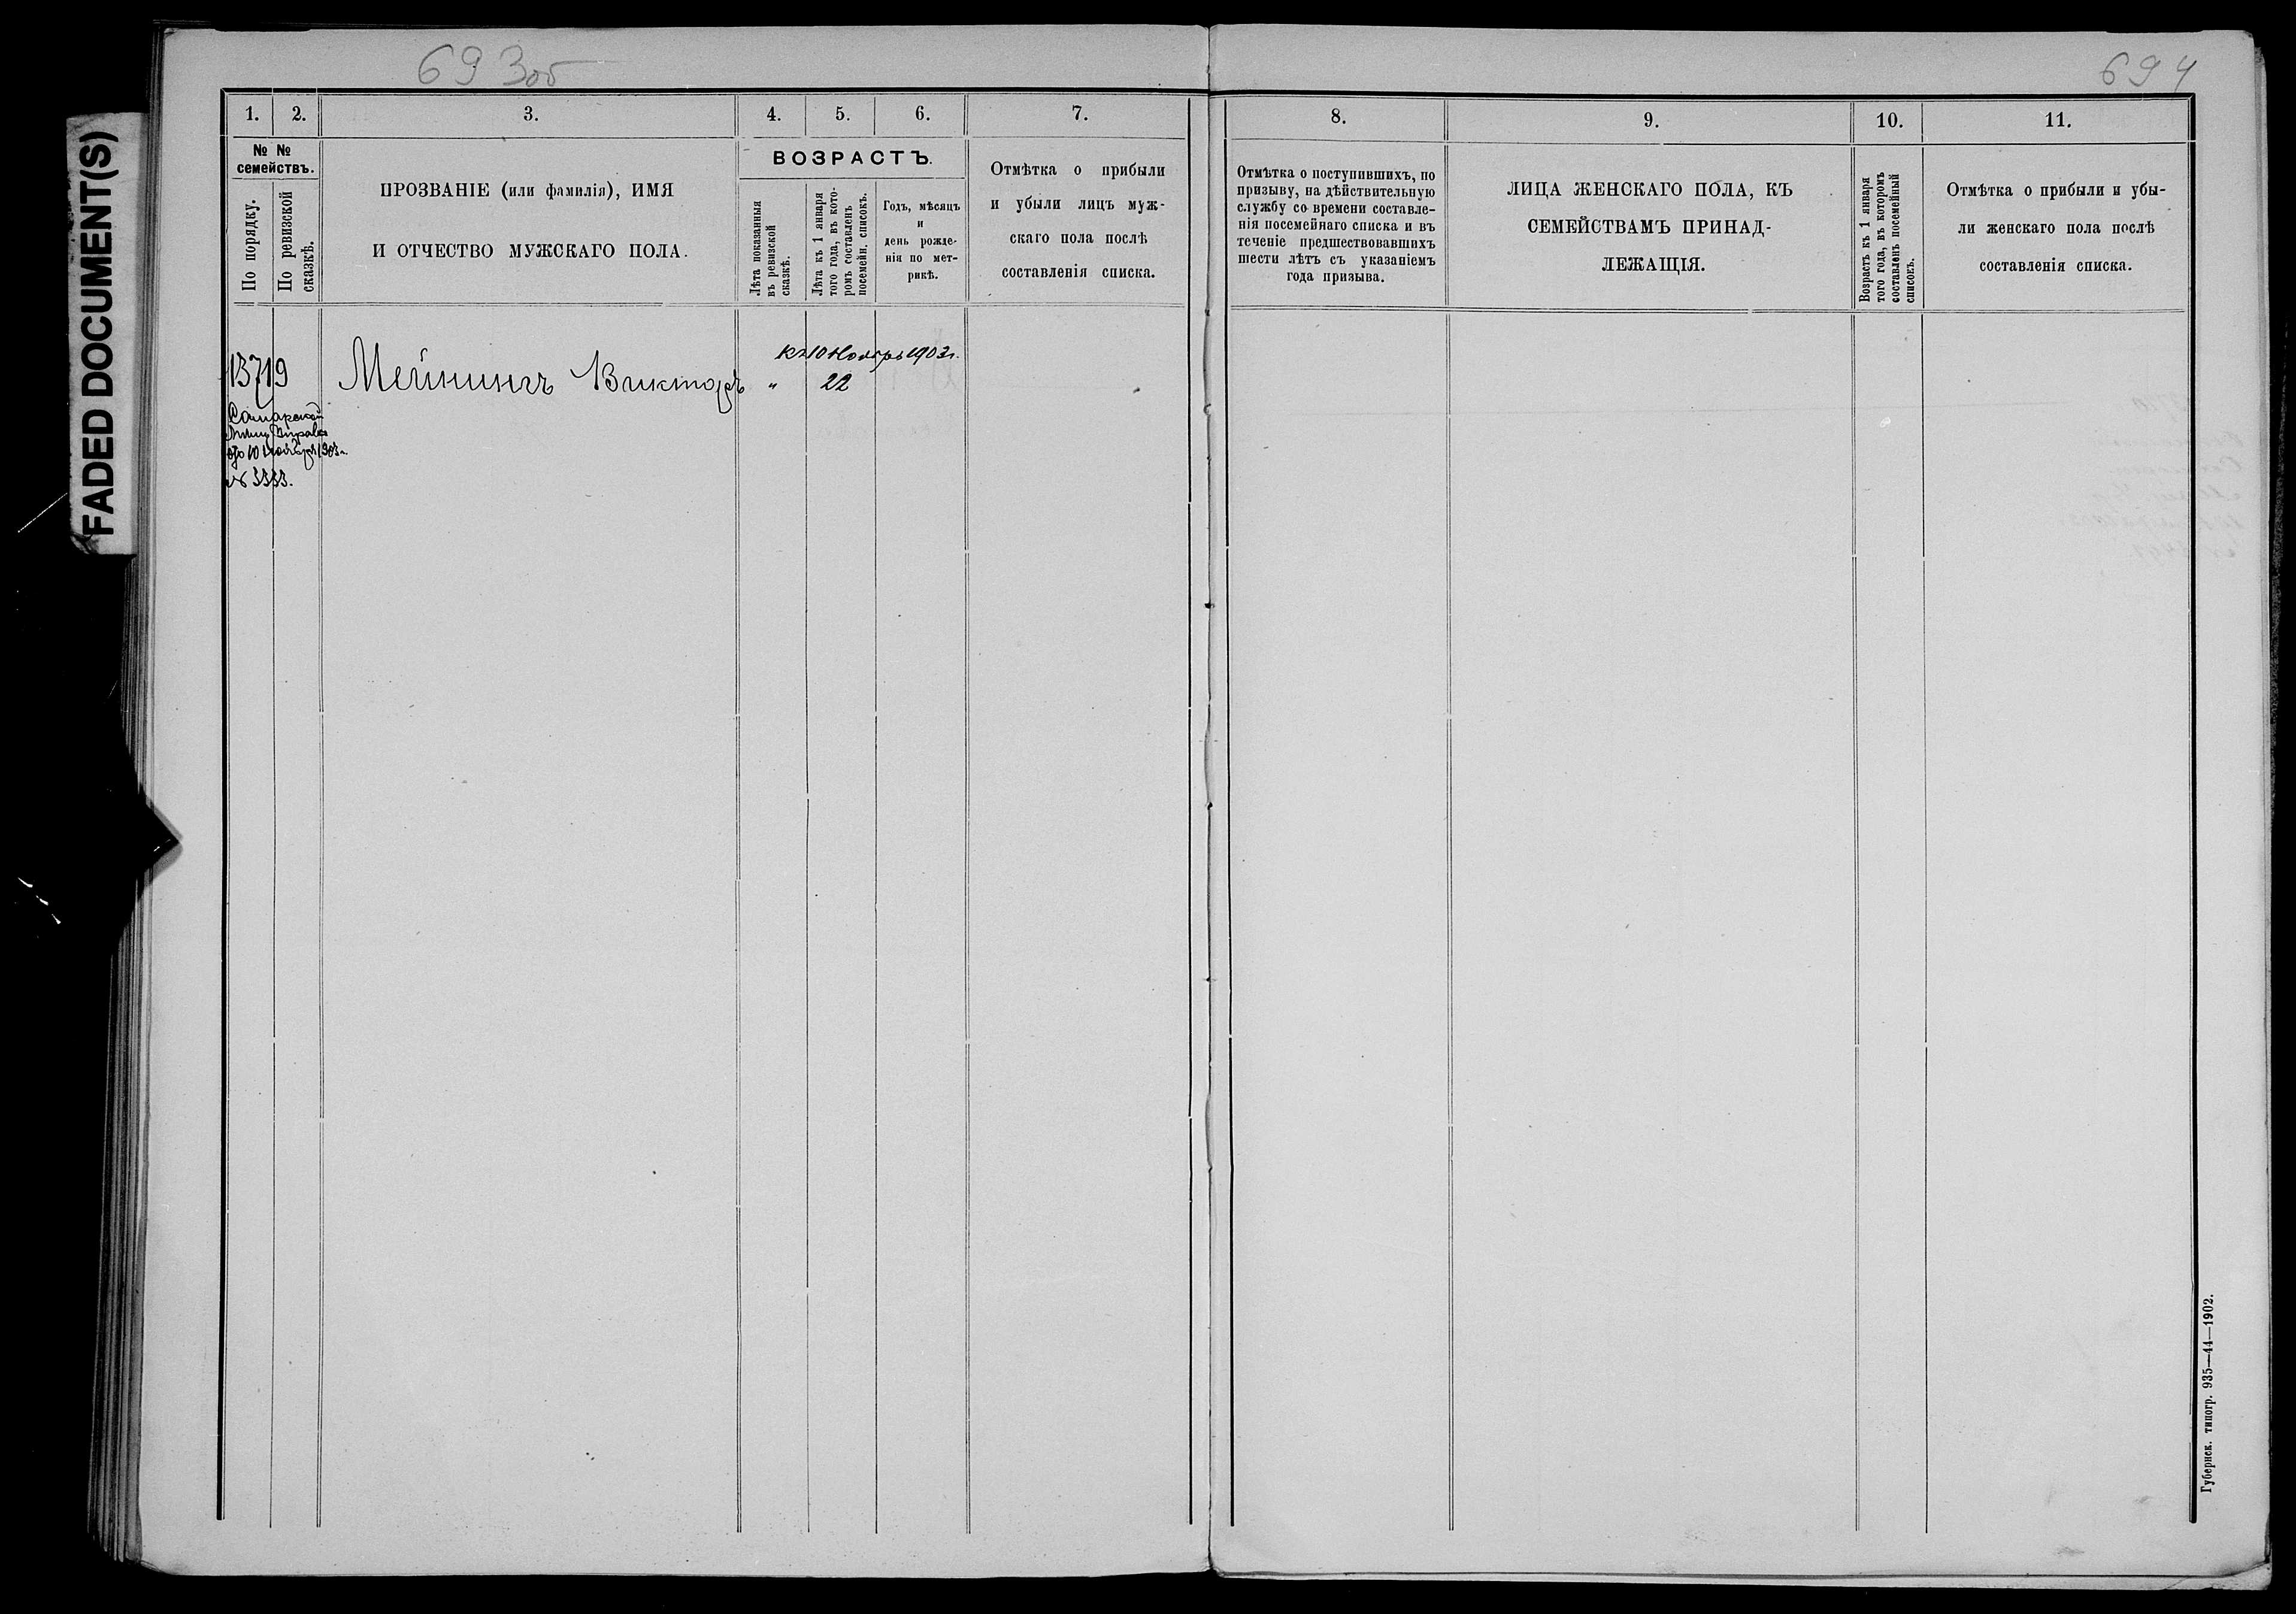 FADED DOCUMENT(S)
693об
694
1.
2.
3.
4.
5.
6.
7.
№ №
семействъ.
По порядку.
По ревизской
сказкѣ.
ПРОЗВАНІЕ (или фамилія), ИМЯ
И ОТЧЕСТВО МУЖСКАГО ПОЛА.
ВОЗРАСТЪ.
Лѣта показанныя
въ ревизской
сказкѣ.
Лѣта къ 1 января
того года, въ кото-
ромъ составленъ
посемейн. списокъ.
Годъ, мѣсяцъ
и
день рожде-
нія по мет-
рикѣ.
Отмѣтка о прибыли
и убыли лицъ муж-
скаго пола послѣ
составленія списка.
8.
9.
10.
11.
Отмѣтка о поступившихъ, по
призыву, на дѣйствительную
службу со времени составле-
нія посемейнаго списка и въ
теченіе предшествовавшихъ
шести лѣтъ съ указаніемъ
года призыва.
ЛИЦА ЖЕНСКАГО ПОЛА, КЪ
СЕМЕЙСТВАМЪ ПРИНАД-
ЛЕЖАЩІЯ.
Возрастъ къ 1 января
того года, въ которомъ
составленъ посемейный
списокъ.
Отмѣтка о прибыли и убы-
ли женскаго пола послѣ
составленія списка.
къ 10 Ноябрь 1903г.
13719 Мейнингъ Викторъ " 22
Самарской
Мѣщ. Управы
10 Ноября 1903г.
№ 3333.
Губернск. типогр. 935—44—1902.